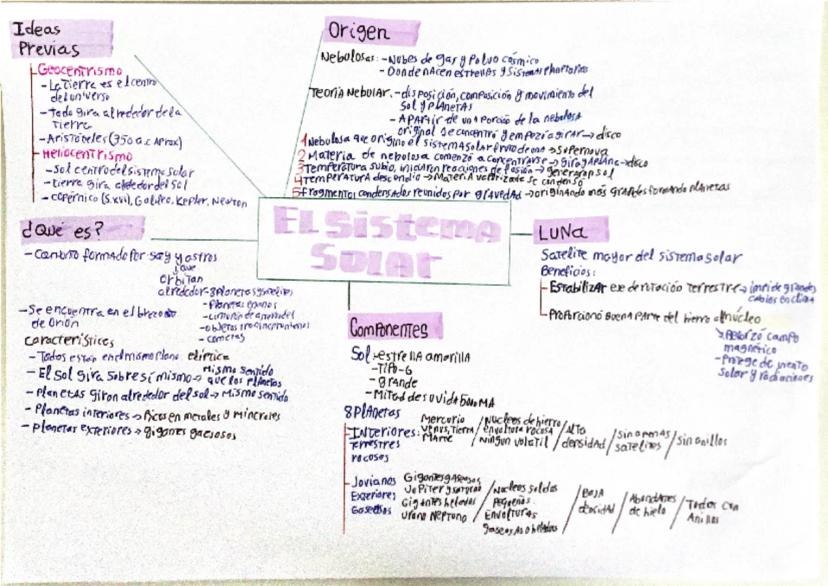 Ideas
Previas
Geocentrismo
- La tierra es el centro
del universo
- Todo gira alrededor de la
tierra
- Aristóteles (350 a.c Aprox)
Heliocentrismo
- Sol centro del sistema solar
- tierra gira alrededor del sol
- copérnico (S.XVI), Galileo, Kepler, Newton
Origen
Nebulosas: - Nubes de gas y Polvo cósmico
- Donde nacen estrellas y sistemas planetarios
Teoría Nebular: - disposición, composición y movimiento del
sol y planetas
- A partir de una porción de la nebulosa
original se concentró y empezó a girar → disco
1 Nebulosa que origino el sistema solar fruto de una → supernova
2 Materia de nebulosa comenzó a concentrarse → giro y aplano → disco
3 Temperatura subio, iniciaron reacciones de fusión → generaron sol
4 Temperatura descendio → materia vaporizada se condensó
5 Fragmentos condensados reunidos por gravedad → originando más grandes formando planetas
El Sistema
Solar
¿Qué es?
- Conjunto formado por sol y astros
que
orbitan
alrededor - 8 planetas y satelites
- Planetas enanos
- objetos
- cometas
- Se encuentra en el brazo
de Orión
Características
- Todos están en el mismo plano eliptica
- El Sol gira sobre sí mismo → mismo sentido
que los planetas
- Planetas giran alrededor del sol → mismo sentido
- Planetas interiores → Ricos en metales y minerales
- Planetas exteriores → gigantes gaseosos
Luna
Satelite mayor del sistema solar
Beneficios:
- Estabilizar eje de rotación terrestre → impide grandes
cambios en clima
- Proporcionó buena parte del hierro al núcleo
→ Reforzó campo
magnético
- Protege de viento
solar y radiaciones
Componentes
Sol - estrella amarilla
- Tipo - G
- grande
- Mitad de su vida 5000 MA
8 Planetas
- Interiores: Mercurio / Nucleos de hierro / Alta / Sin apenas / Sin anillos
terrestres Venus, tierra / envoltura rocosa / densidad / satelites
rocosos Marte / ningun volatil
- Jovianos Gigantes gaseosos / Nucleos solidos / Baja / Abundantes / Todos con
Exteriores Jupiter y saturno / Pequeños / densidad / de hielo / Anillos
Gaseosos Gigantes helados / Envolturas
Urano Neptuno / gaseosas o heladas